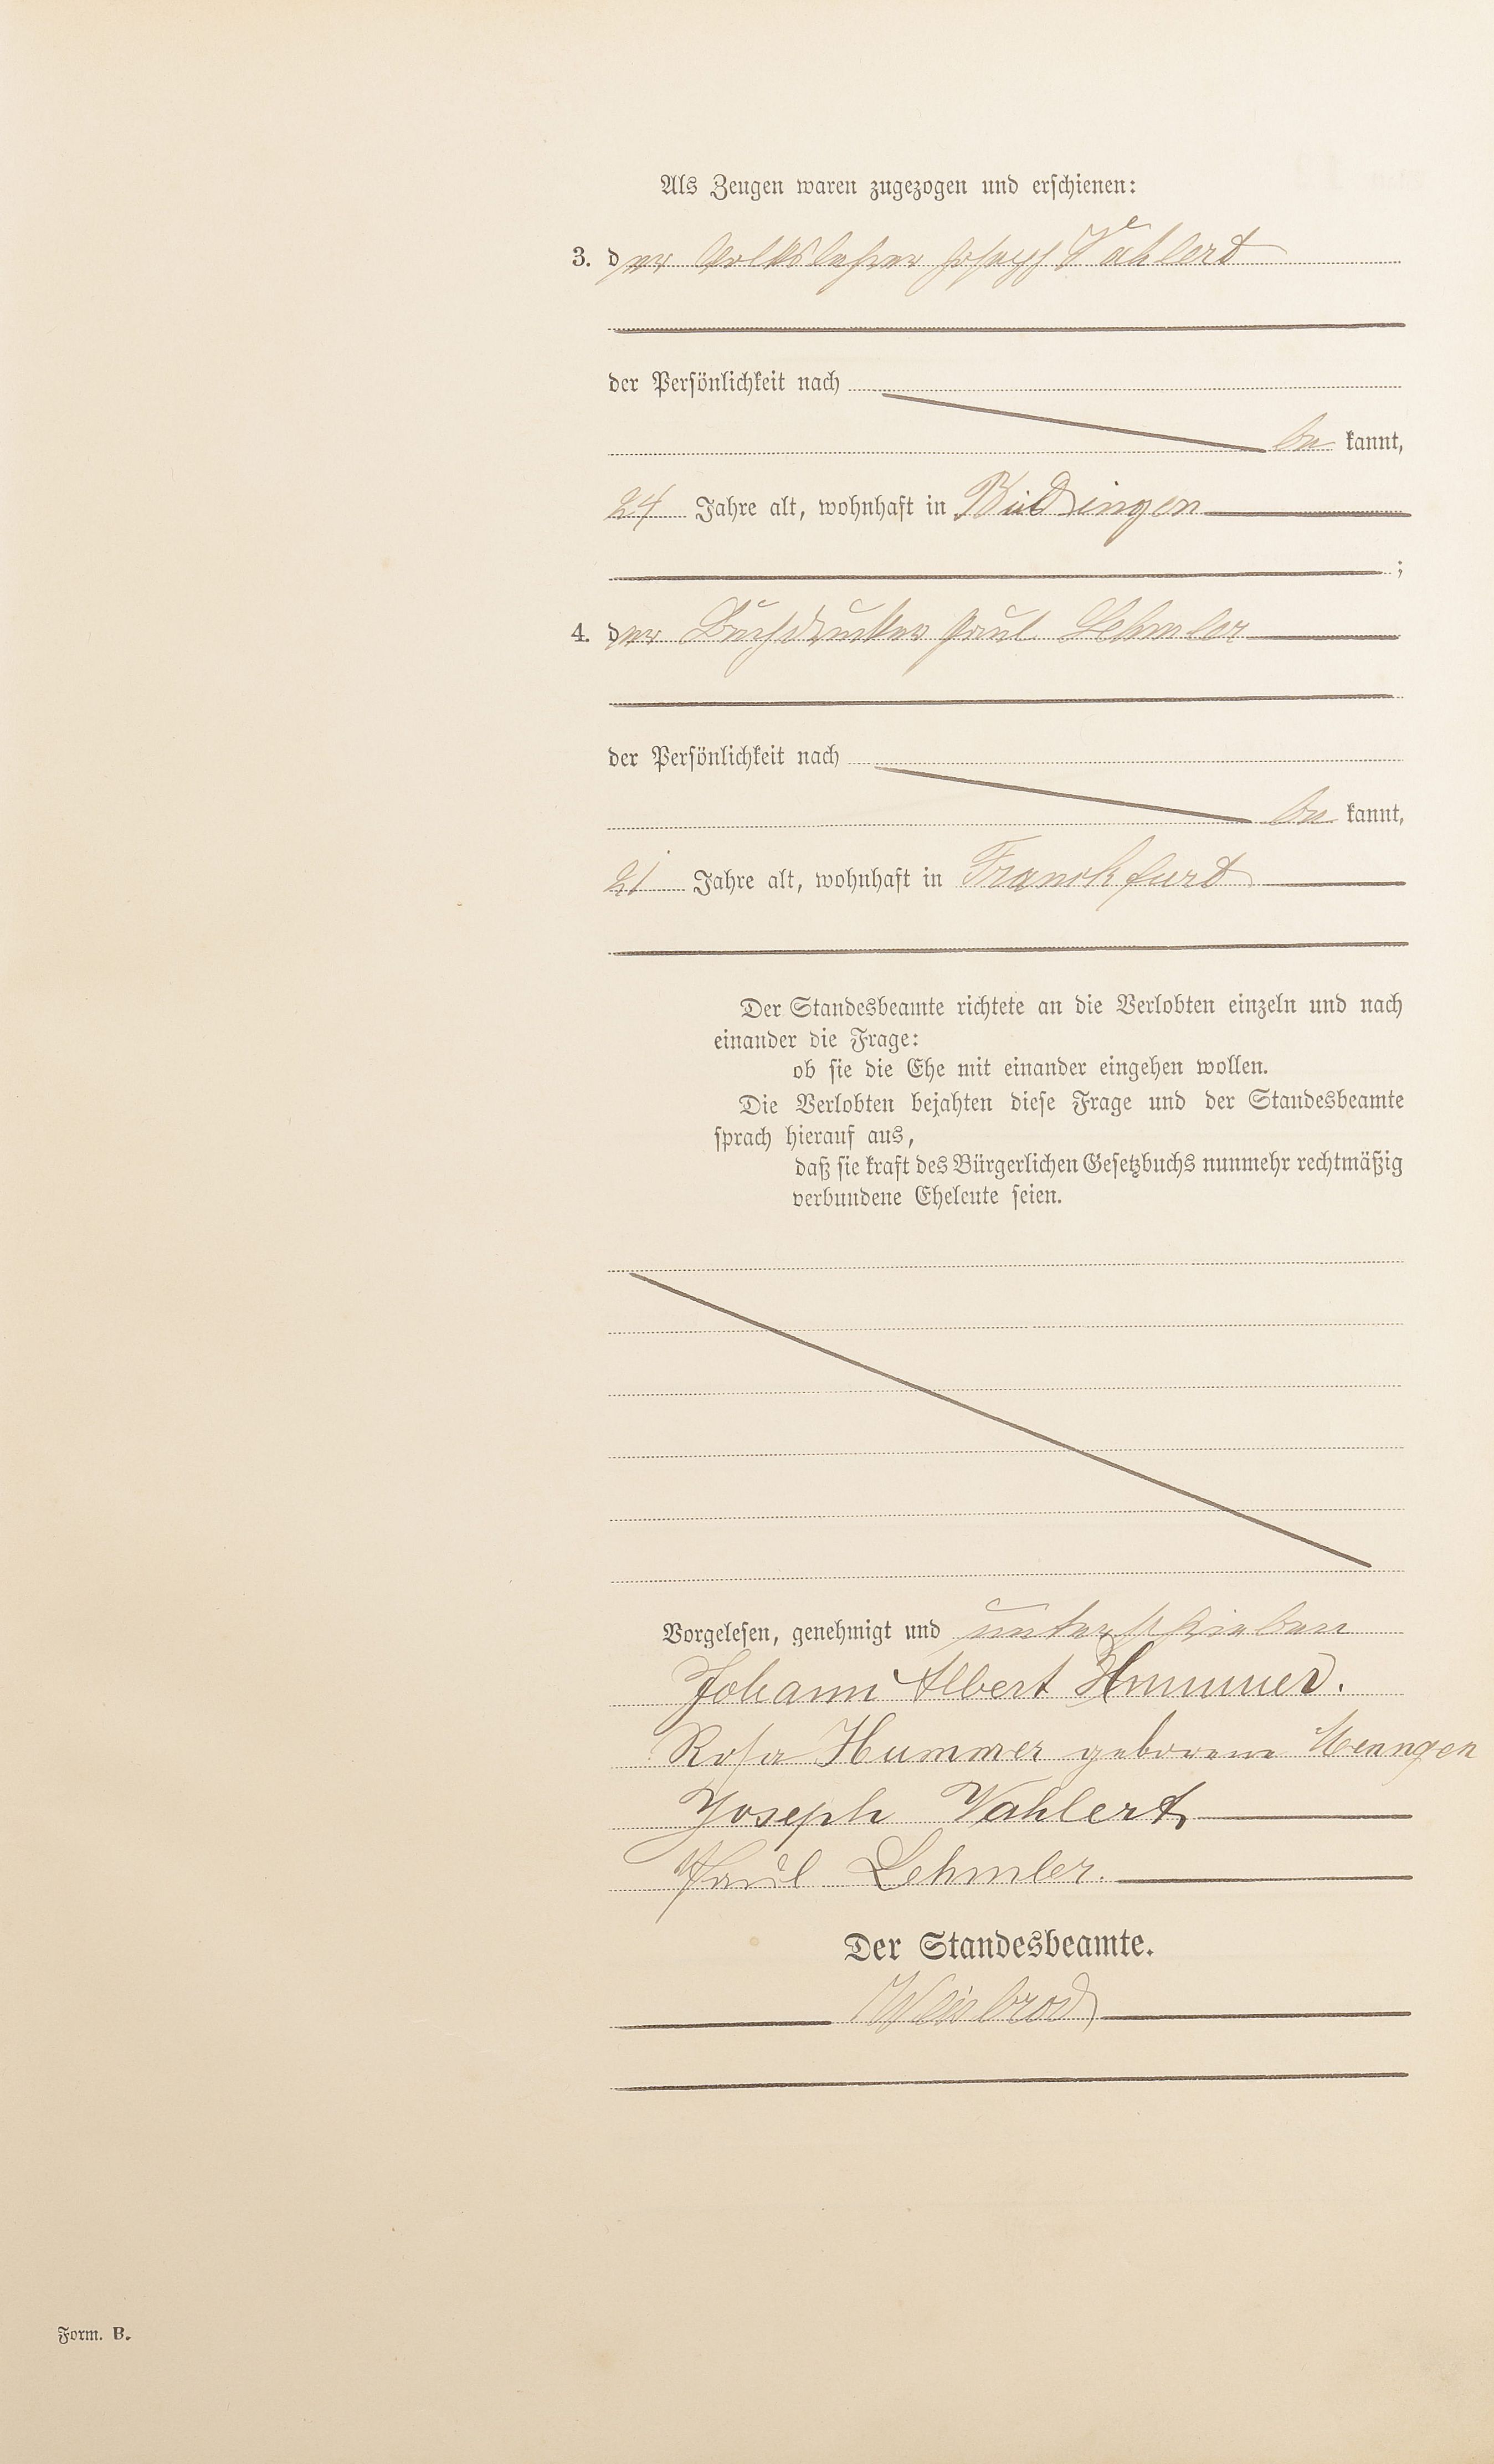 Als Zeugen waren zugezogen und erschienen:
3. der Volkslehrer Joseph Vahlert
der Persönlichkeit nach
be kannt,
24 Jahre alt, wohnhaft in Büdingen
;
4. der Buchdrucker Paul Lehmler
der Persönlichkeit nach
be kannt,
21 Jahre alt, wohnhaft in Franckfurt
Der Standesbeamte richtete an die Verlobten einzeln und nach
einander die Frage:
ob sie die Ehe mit einander eingehen wollen.
Die Verlobten bejahten diese Frage und der Standesbeamte
sprach hierauf aus,
daß sie kraft des Bürgerlichen Gesetzbuchs nunmehr rechtmäßig
verbundene Eheleute seien.
Vorgelesen, genehmigt und unterschrieben
Johann Albert Hummer.
Rosa Hummer geborene
Joseph Vahlert
Paul Lehmler.
Der Standesbeamte.
Weisbrod
Form. B.